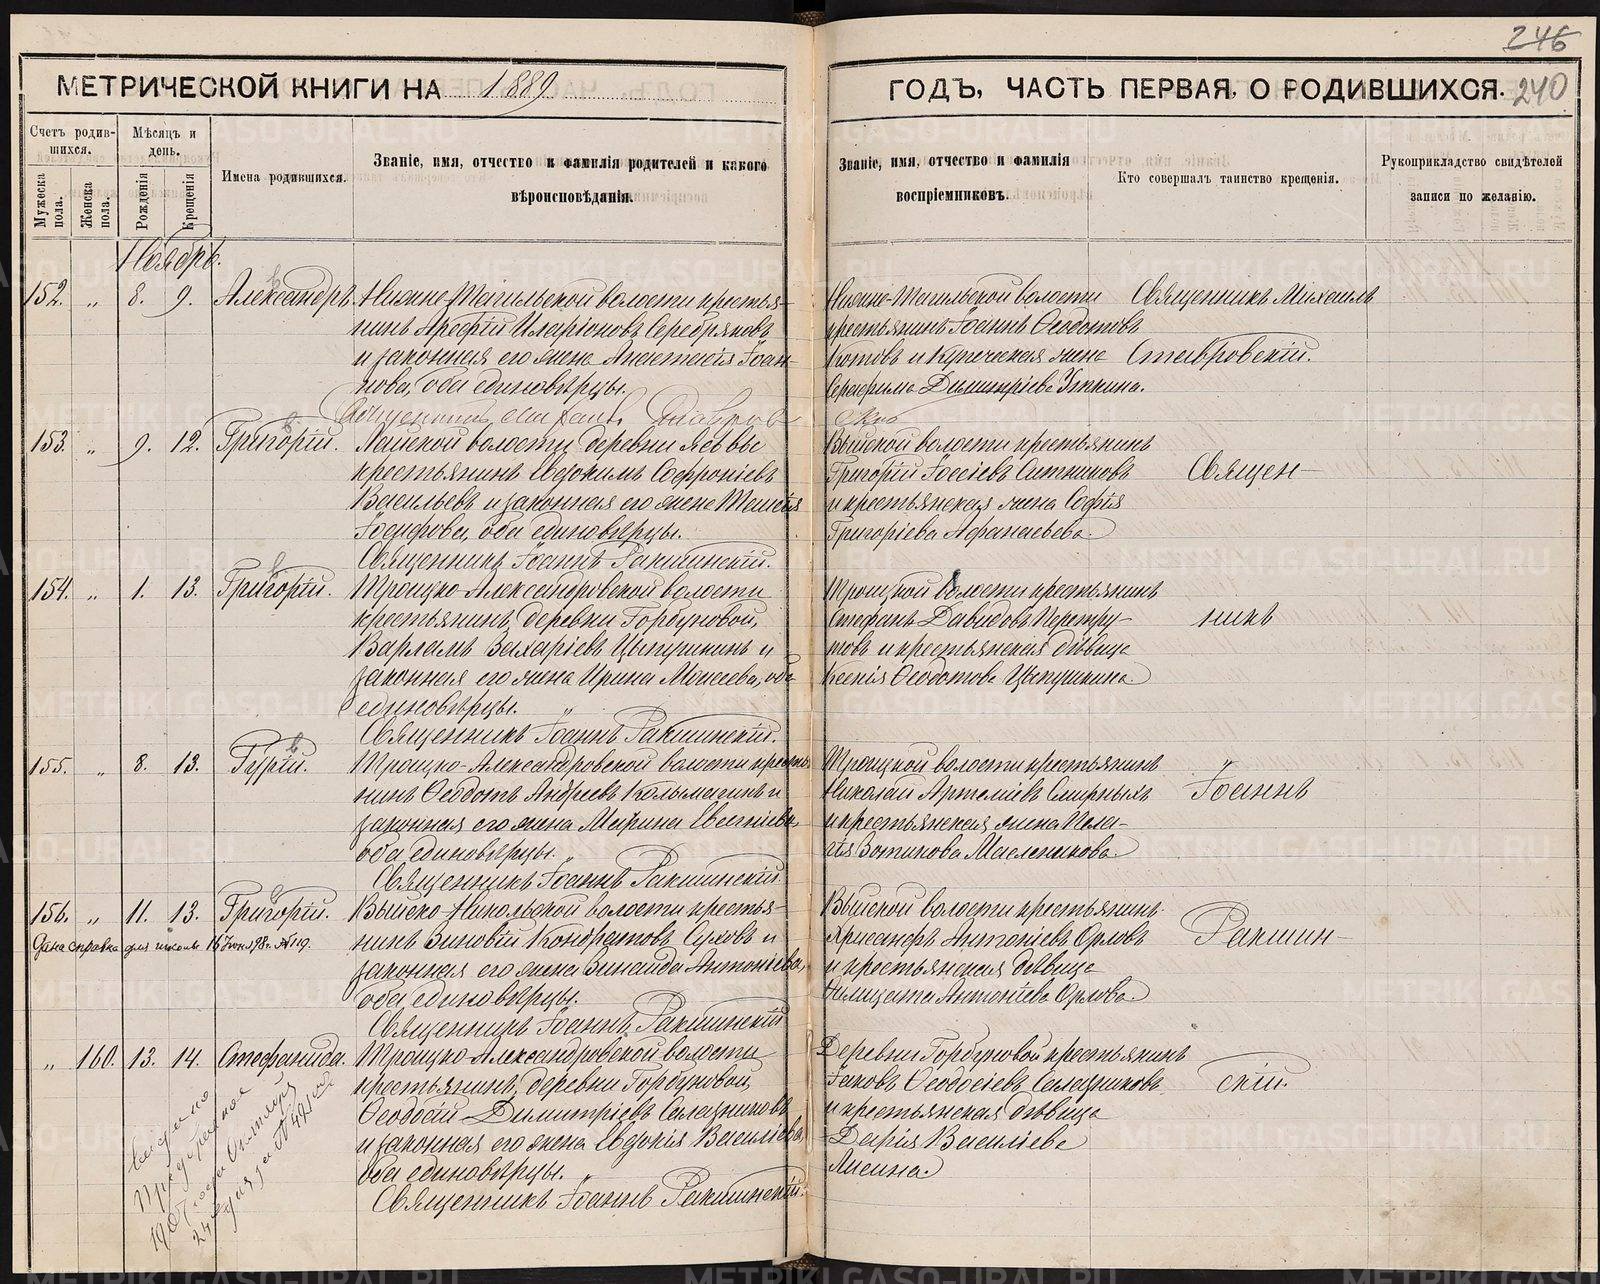 246
240
МЕТРИЧЕСКОЙ КНИГИ НА 1889
ГОДЪ, ЧАСТЬ ПЕРВАЯ, О РОДИВШИХСЯ.
Счетъ родив-
шихся.
Мужеска пола.
Женска пола.
Мѣсяцъ и
день.
Рожденія
Крещенія
Имена родившихся.
Званіе, имя, отчество и фамилія родителей и какого
вѣроисповѣданія.
Званіе, имя, отчество и фамилія
воспріемниковъ.
Кто совершалъ таинство крещенія.
Рукоприкладство свидѣтелей
записи по желанію.
Ноябрь.
152. „ 8. 9. Александръ. Нижне-Тагильской волости крестья-
нинъ Арефій Иларіоновъ Серебряковъ
и законная его жена Анастасія Іоан-
нова, оба единовѣрцы.
Священникъ Михаилъ Ставров
ский
Нижне-Тагильской волости
крестьянинъ Іоаннъ Ѳеодотовъ
Котовъ и купеческая жена
Серафима Димитріева Уткина.
Священникъ Михаилъ
Ставровскій.
153. „ 9. 12. Григорій. Лайской волости, деревни
крестьянинъ Евдокимъ Софроніевъ
Васильевъ и законная его жена Таисія
Іосифова, оба единовѣрцы.
Священникъ Іоаннъ Ракшинскій.
Выйской волости крестьянинъ
Григорій Ситниковъ
и крестьянская жена Софія
Григоріева Афанасьева.
Священ-
154. „ 1. 13. Григорій. Троицко-Александровской волости
крестьянинъ, деревни Горбуновой,
Варлаамъ Захаріевъ Цыпушкинъ и
законная его жена Ирина Моисеева, оба
единовѣрцы.
Священникъ Іоаннъ Ракшинскій.
Троицкой волости крестьянинъ
Стефанъ Давидовъ Перетру-
товъ и крестьянская дѣвица
Ксенія Ѳеодотова Цыпушкина
никъ
155. „ 8. 13. Гурій. Троицко-Александровской волости кресть-
нинъ Ѳеодотъ Андреевъ Колмагинъ и
законная его жена Марина
оба единовѣрцы.
Священникъ Іоаннъ Ракшинскій
Троицкой волости крестьянинъ
Николай Артеміевъ Смирныхъ
и крестьянская жена Пела-
гія Масленикова.
Іоаннъ
156. „ 11. 13. Григорій. Выйско-Никольской волости крестья-
нинъ Зиновій Кондратовъ Суховъ и
законная его жена Зинаида Антоніева,
оба единовѣрцы.
Священникъ Іоаннъ Ракшинскій
Дана справка для школы 16 98г. № 119.
Выйской волости крестьянинъ
Хрисанфъ Антоніевъ Орловъ
и крестьянская дѣвица
Филицата Антоніева Орлова.
Ракшин-
„ 160. 13. 14. Стефанида. Троицко-Александровской волости
крестьянинъ, деревни Горбуновой,
Ѳеодосій Димитріевъ Салазниковъ
и законная его жена Евдокія Василіева,
оба единовѣрцы.
Священникъ Іоаннъ Ракшинскій.
Деревни Горбуновой крестьянинъ
Іаковъ Ѳеодосіевъ Салазниковъ
и крестьянская дѣвица
Дарія Василіева
Лисина.
скій.